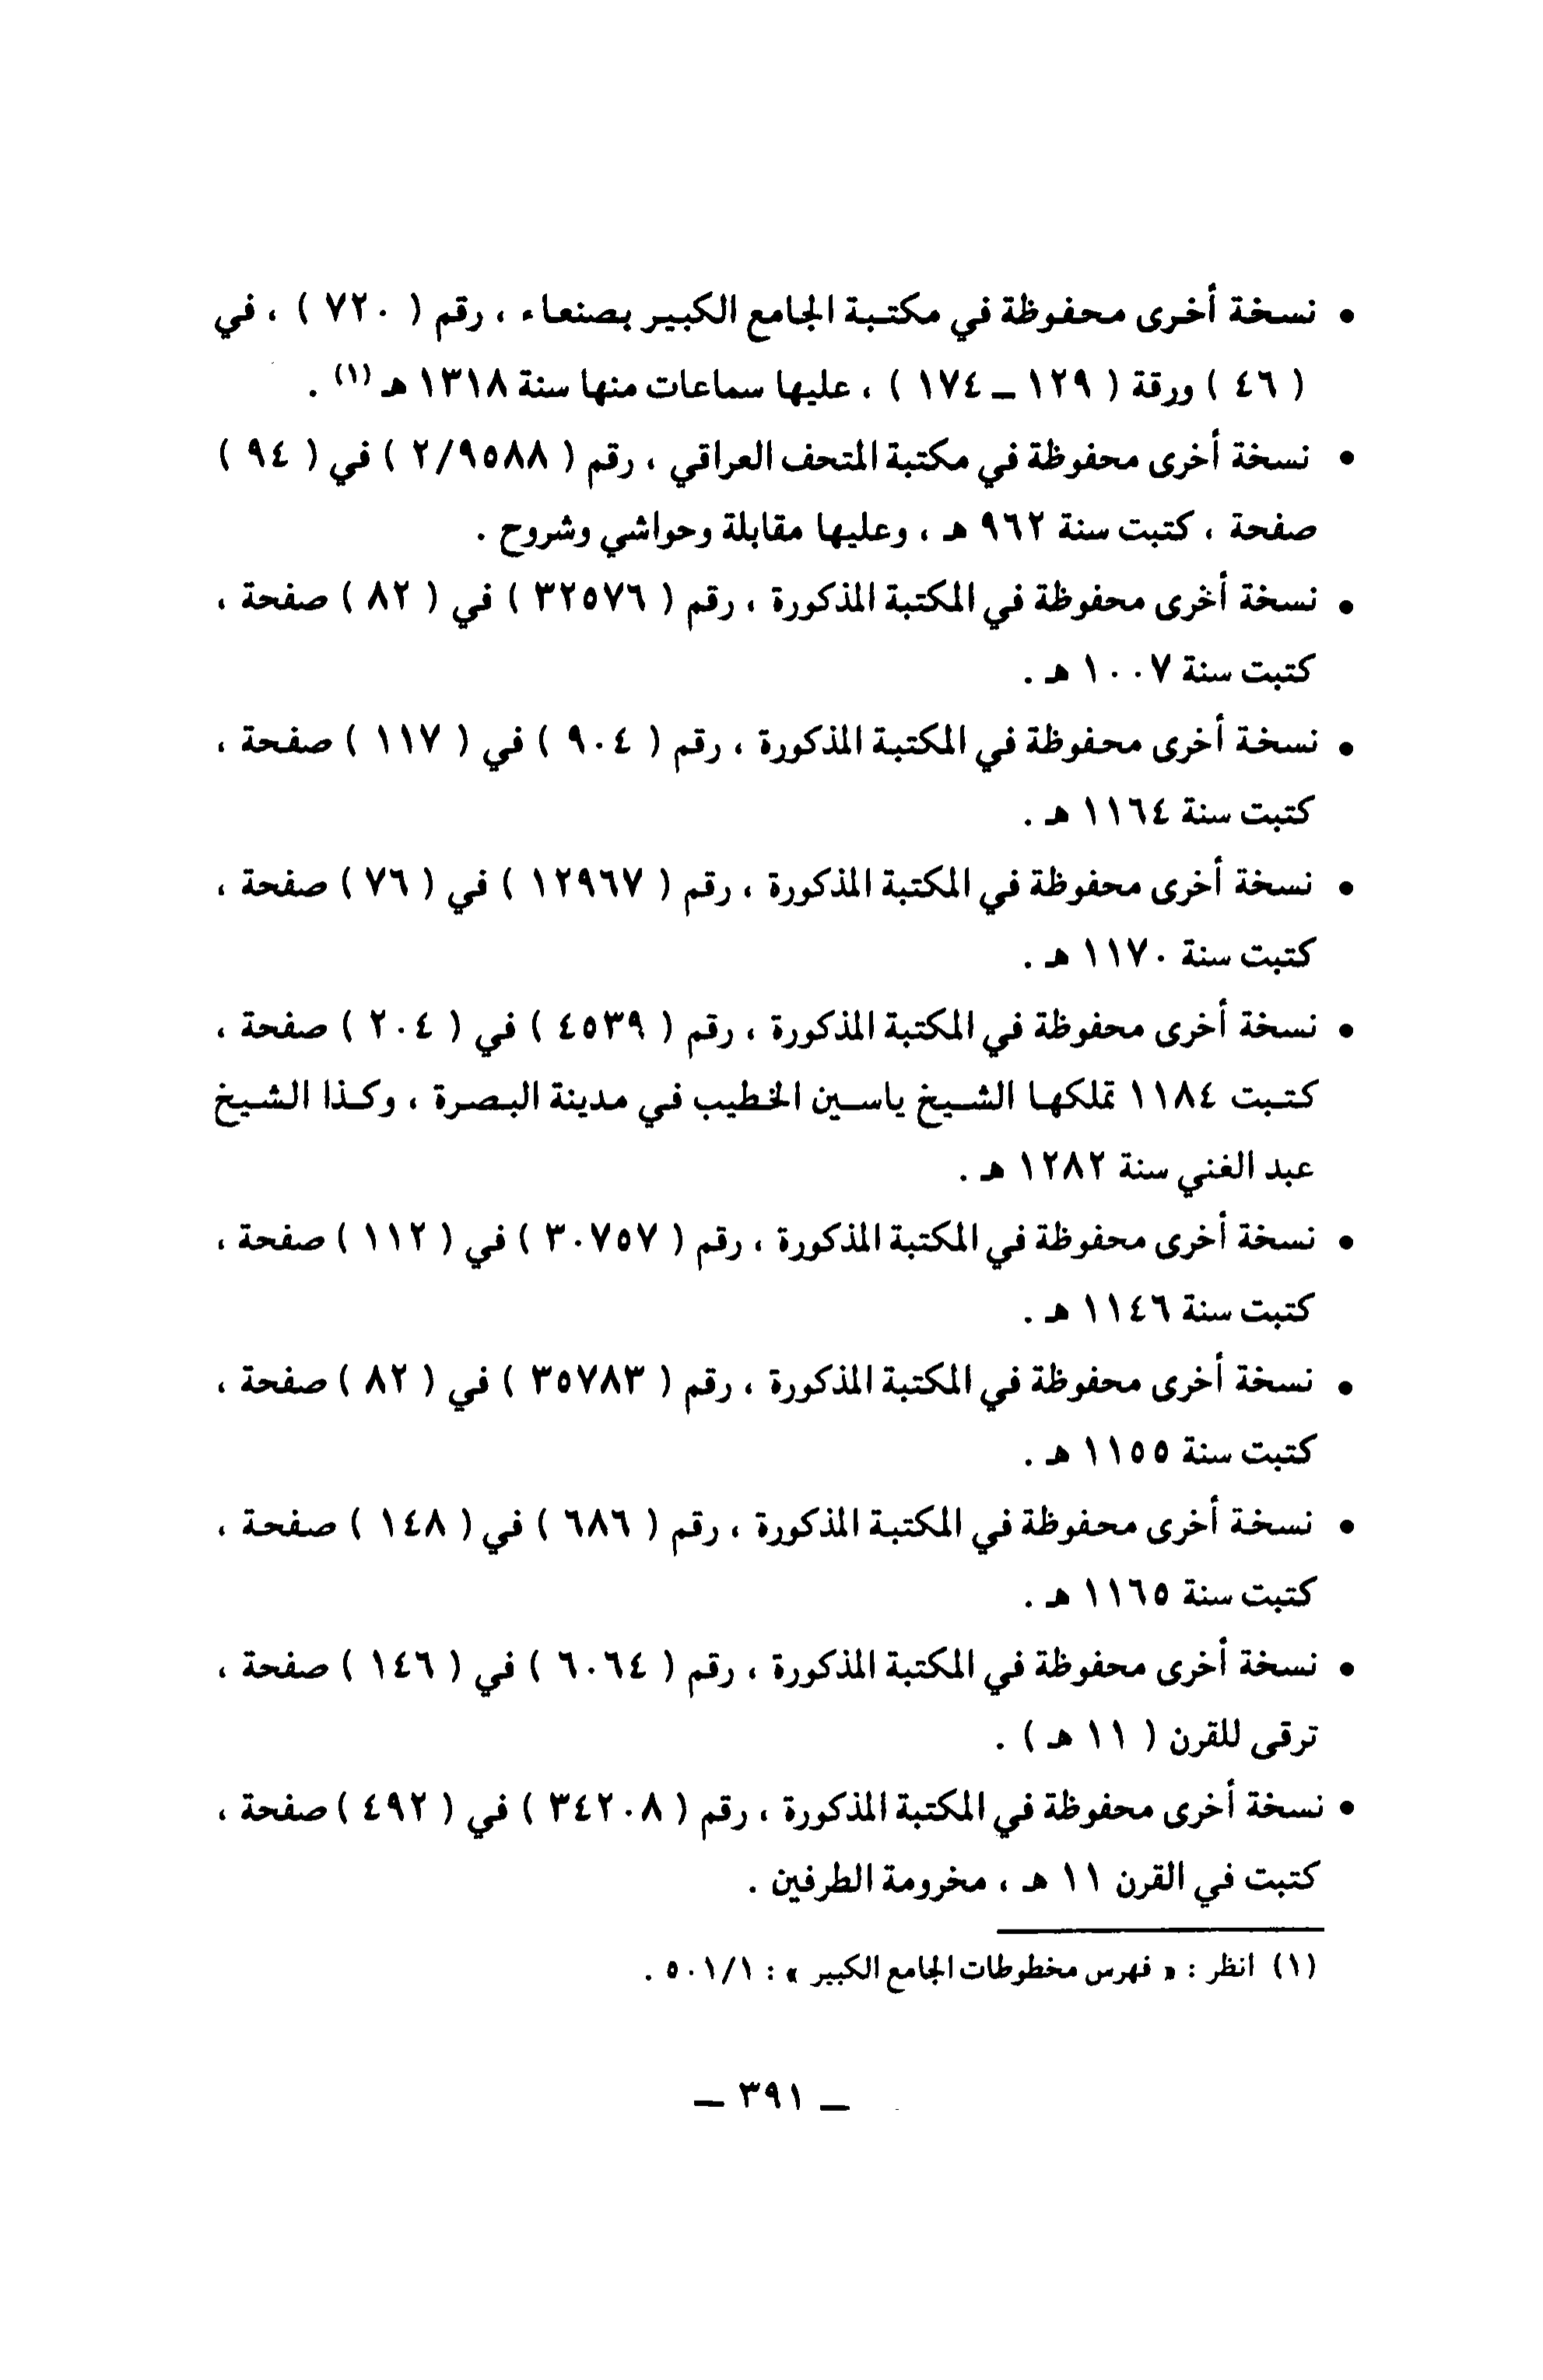 • نسخة أخرى محفوظة في مكتبة الجامع الكبير بصنعاء ، رقم ( ٧٢٠ ) ، في
( ٤٦ ) ورقة ( ١٢٩ – ١٧٤ ) ، عليها سماعات منها سنة ١٣١٨ هـ (١) .
• نسخة أخرى محفوظة في مكتبة المتحف العراقي ، رقم ( ٢/٩٥٨٨ ) في ( ٩٤ )
صفحة ، كتبت سنة ٩٦٢ هـ ، وعليها مقابلة وحواشي وشروح .
• نسخة أخرى محفوظة في المكتبة المذكورة ، رقم ( ٣٢٥٧٦ ) في ( ٨٢ ) صفحة ،
كتبت سنة ١٠٠٧ هـ .
• نسخة أخرى محفوظة في المكتبة المذكورة ، رقم ( ٩٠٤ ) في ( ١١٧ ) صفحة ،
كتبت سنة ١١٦٤ هـ .
• نسخة أخرى محفوظة في المكتبة المذكورة ، رقم ( ١٢٩٦٧ ) في ( ٧٦ ) صفحة ،
كتبت سنة ١١٧٠ هـ .
• نسخة أخرى محفوظة في المكتبة المذكورة ، رقم ( ٤٥٣٩ ) في ( ٢٠٤ ) صفحة ،
كتبت ١١٨٤ تملكها الشيخ ياسين الخطيب في مدينة البصرة ، وكذا الشيخ
عبد الغني سنة ١٢٨٢ هـ .
• نسخة أخرى محفوظة في المكتبة المذكورة ، رقم ( ٣٠٧٥٧ ) في ( ١١٢ ) صفحة ،
كتبت سنة ١١٤٦ هـ .
• نسخة أخرى محفوظة في المكتبة المذكورة ، رقم ( ٣٥٧٨٣ ) في ( ٨٢ ) صفحة ،
كتبت سنة ١١٥٥ هـ .
• نسخة أخرى محفوظة في المكتبة المذكورة ، رقم ( ٦٨٦ ) في ( ١٤٨ ) صفحة ،
كتبت سنة ١١٦٥ هـ .
• نسخة أخرى محفوظة في المكتبة المذكورة ، رقم ( ٦٠٦٤ ) في ( ١٤٦ ) صفحة ،
ترقى للقرن ( ١١ هـ ) .
• نسخة أخرى محفوظة في المكتبة المذكورة ، رقم ( ٣٤٢٠٨ ) في ( ٤٩٢ ) صفحة ،
كتبت في القرن ١١ هـ ، مخرومة الطرفين .
(١) انظر : « فهرس مخطوطات الجامع الكبير » : ٥٠١/١ .
– ٣٩١ –